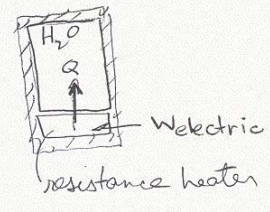 H₂O
Q
Welectric
resistance heater